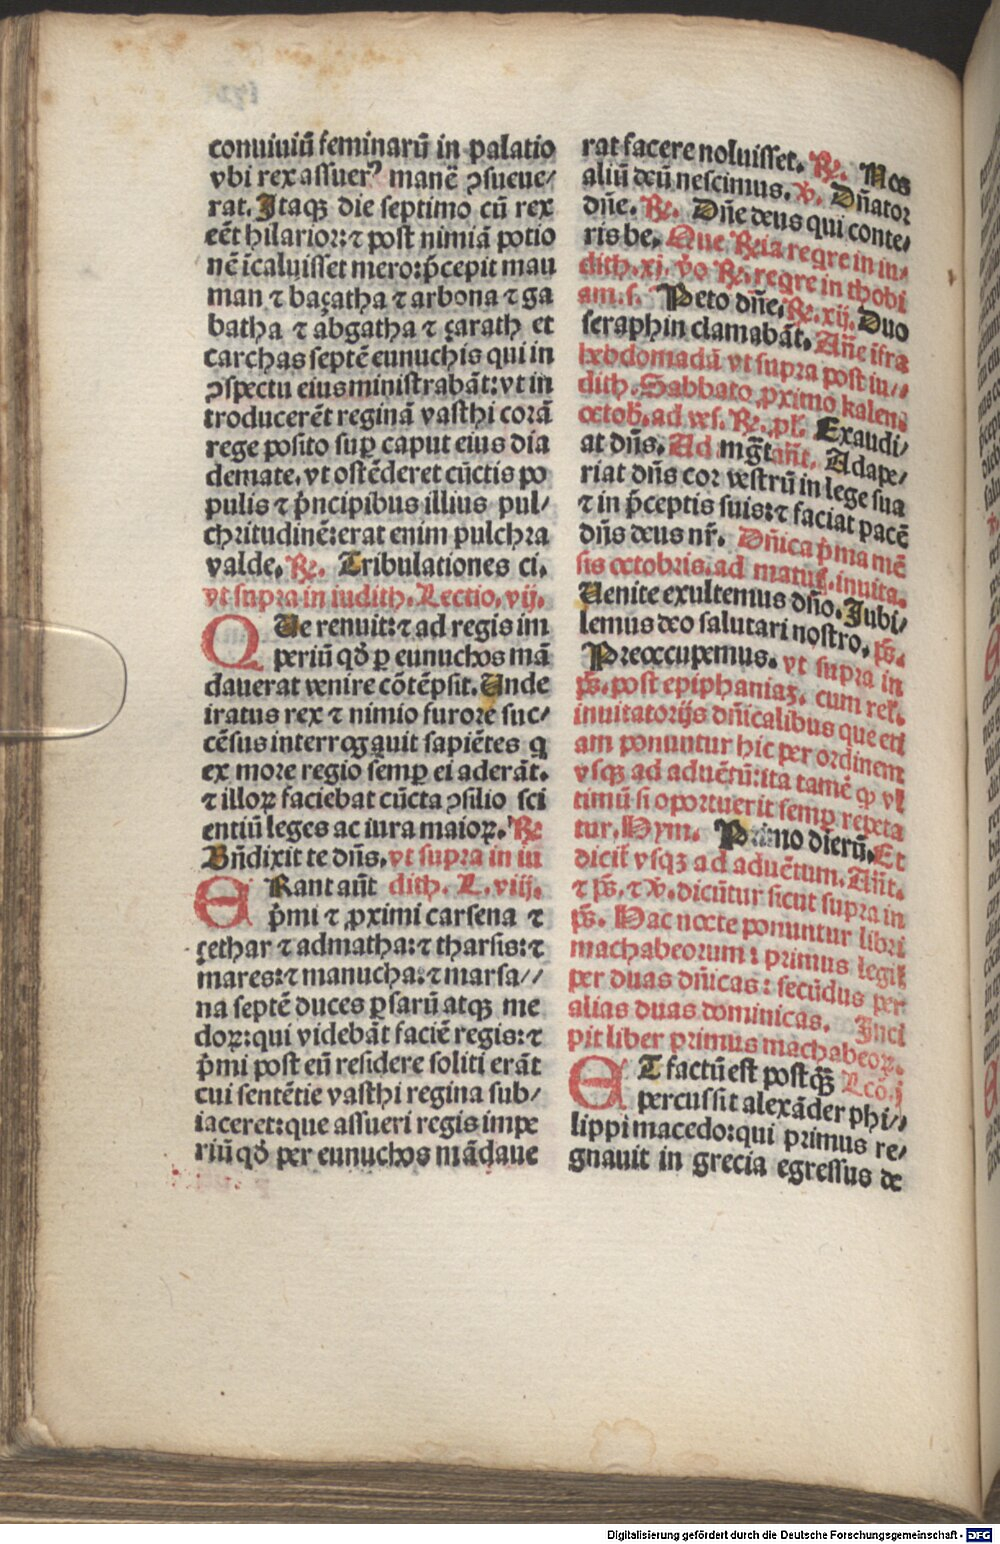 conuiuiū feminarū in palatio
vbi rex assuerꝰ manē ꝯsueue/
rat. Itaqꝫ die septimo cū rex
eēt hilarior: ⁊ post nimiā potio
nē īcaluisset mero: p̄cepit mau
man ⁊ baçatha ⁊ arbona ⁊ ga
batha ⁊ abgatha ⁊ çarath et
carchas septē eunuchis qui in
ꝯspectu eius ministrabāt: vt in
troducerēt reginā vasthi corā
rege posito suꝑ caput eius dia
demate. vt ostēderet cūctis po
pulis ⁊ p̄ncipibus illius pul/
chritudinē: erat enim pulchra
valde. ℞. Tribulationes ci.
vt supra in iudith. Lectio. vij.
QUe renuit: ⁊ ad regis im
periū qd̄ ꝑ eunuchos mā
dauerat venire cōtēpsit. Unde
iratus rex ⁊ nimio furore suc/
cēsus interrogauit sapiētes q
ex more regio semꝑ ei aderāt.
⁊ illoꝝ faciebat cūcta ꝯsilio sci
entiū leges ac iura maioꝝ. ℞
Bn̄dixit te dn̄s. vt supra in iu
ERant aūt dith. L. viij.
p̄mi ⁊ ꝓximi carsena ⁊
çethar ⁊ admatha: ⁊ tharsis: ⁊
mares: ⁊ manucha: ⁊ marsa//
na septē duces ꝑsarū atqꝫ me
doꝝ: qui videbāt faciē regis: ⁊
p̄mi post eū residere soliti erāt
cui sentētie vasthi regina sub/
iaceret: que assueri regis impe
riū qd̄ per eunuchos mādaue
rat facere noluisset. ℞. Nos
aliū deū nescimus. ℣. Dn̄ator
dn̄e. ℞. Dn̄e deus qui conte/
ris be. Que ℞ria regre in iu/
dith. xj. v̄o ℞. regre in thobi
am. s. Peto dn̄e. ℞. xij. Duo
seraphin clamabāt. Añe īfra
hebdomadā vt supra post iu//
dith. Sabbato ꝓximo kalen.
octob. ad vs. ℞. pł. Exaudi/
at dn̄s. Ad mg̅t añt. Adape/
riat dn̄s cor vestrū in lege sua
⁊ in p̄ceptis suis: ⁊ faciat pacē
dn̄s deus nr̄. Dn̄ica p̄ma mē
sis octobris. ad matuł. inuita.
Uenite exultemus dn̄o. Jubi/
lemus deo salutari nostro. ps̄.
Preoccupemus. vt supra in
ps̄. post epiphaniaꝫ. cum rel.
inuitatorijs dn̄icalibus que eti
am ponuntur hic per ordinem
vsqꝫ ad aduētū: ita tamē ꝙ vl
timū si oportuerit semꝑ repeta
tur. Hym. Primo dierū. Et
dicit̄ vsqꝫ ad aduētum. Añt.
⁊ ps̄. ⁊ ℣. dicūtur sicut supra in
ps̄. Hac nocte ponuntur libri
machabeorum: primus legit̄
per duas dn̄icas: secūdus per
alias duas dominicas. Inci
pit liber primus machabeoꝝ.
ET factū est postqꝫ̄ Lcō. j
percussit alexāder phi//
lippi macedo: qui primus re/
gnauit in grecia egressus de
Digitalisierung gefördert durch die Deutsche Forschungsgemeinschaft - DFG